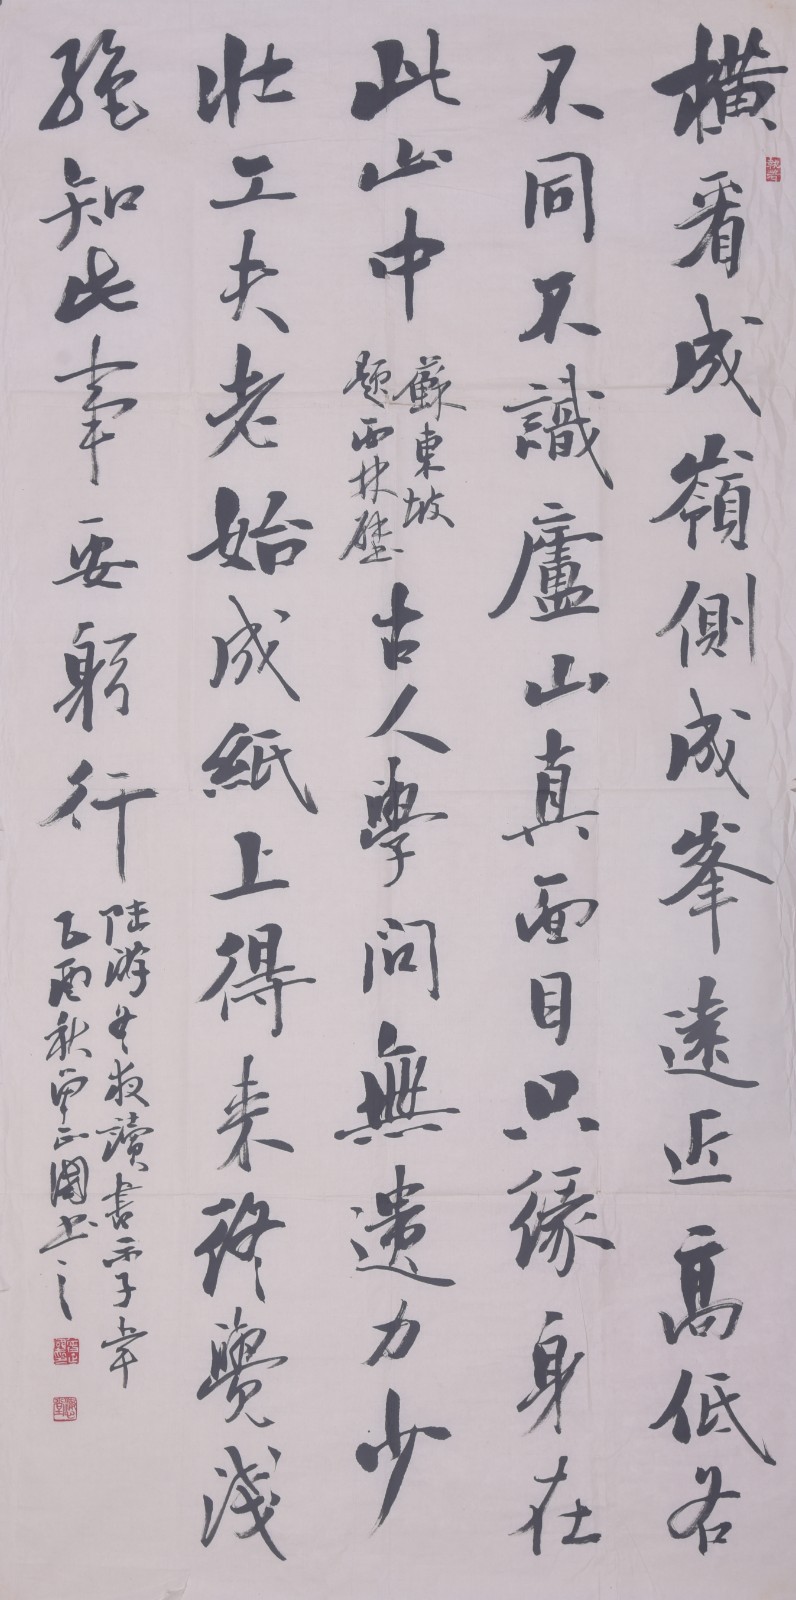 橫看成嶺側成峯遠近高低各
不同不識廬山真面目只緣身在
此山中
蘇東坡
題西林壁
古人學問無遺力少
壯工夫老始成紙上得来終覺淺
絕知此事要躬行
陸游冬夜讀書示子聿
乙酉秋曾正國書之